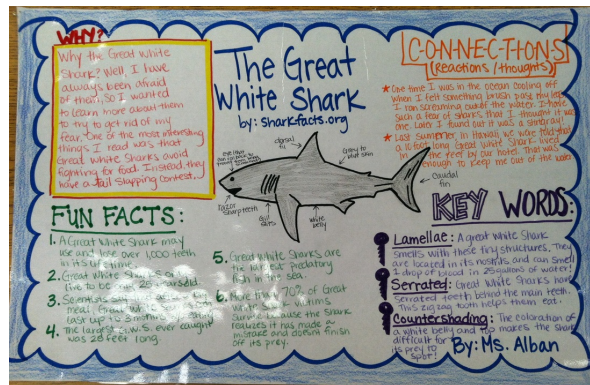 WHY?
Why the Great White
Shark? Well, I have
always been afraid
of them, so I wanted
to learn more about them
to try to get rid of my
fear. One of the most interesting
things I read was that
Great White Sharks avoid
fighting for food. Instead, they
have a tail slapping contest.
The Great
White Shark
by: sharkfacts.org
CONNECTIONS
(Reactions/thoughts)
* One time I was in the ocean cooling off
when I felt something brush past my leg.
I ran screaming out of the water. I have
such a fear of sharks that I thought it was
one. Later I found out it was a surfboard
* Last summer in Hawaii we were told that
a 16 foot long Great White Shark lived
in the reef by our hotel. That was
enough to keep me out of the water
dorsal
fin
Grey to
blue skin
Caudal
fin
razor
sharp teeth
Gill
slits
white
belly
FUN FACTS:
1. A Great White Shark may
use and lose over 1,000 teeth
in its lifetime!
2. Great White Sharks
live to be 25 years old.
3. Scientists
meal, Great
last up to 3 months
4. The largest G.W.S. ever caught
was 23 feet long.
5. Great White Sharks are
the largest predatory
fish in the sea.
6. More than 70% of Great
White Shark victims
survive because the shark
realizes it has made a
mistake and doesn't finish
off its prey.
KEY WORDS:
Lamellae: A great White Shark
smells with these tiny structures. They
are located in its nostrils and can smell
1 drop of blood in 25 gallons of water!
Serrated: Great White Sharks have
serrated teeth behind the main teeth.
This zig zag tooth helps them eat.
Countershading: The coloration of
a white belly and top makes the shark
difficult for
its prey to
spot!
By: Ms. Alban